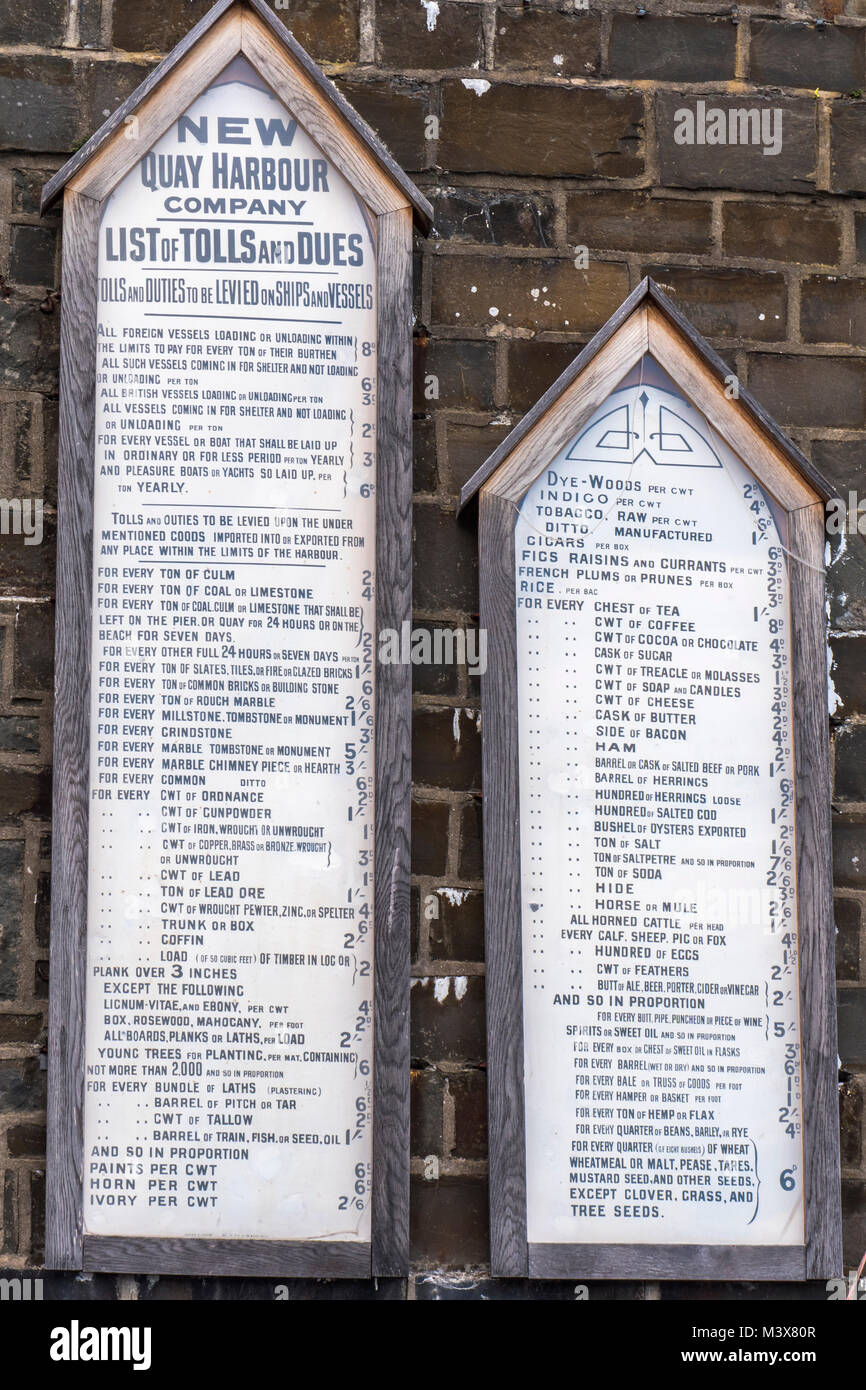 NEW
QUAY HARBOUR
COMPANY
LIST OF TOLLS AND DUES
TOLLS AND DUTIES TO BE LEVIED ON SHIPS AND VESSELS
ALL FOREIGN VESSELS LOADING OR UNLOADING WITHIN
THE LIMITS TO PAY FOR EVERY TON OF THEIR BURTHEN 8D
ALL SUCH VESSELS COMING IN FOR SHELTER AND NOT LOADING
OR UNLOADING PER TON 6D
ALL BRITISH VESSELS LOADING OR UNLOADING PER TON 3D
ALL VESSELS COMING IN FOR SHELTER AND NOT LOADING
OR UNLOADING PER TON 2D
FOR EVERY VESSEL OR BOAT THAT SHALL BE LAID UP
IN ORDINARY OR FOR LESS PERIOD PER TON YEARLY 3D
AND PLEASURE BOATS OR YACHTS SO LAID UP, PER
TON YEARLY. 6D
TOLLS AND DUTIES TO BE LEVIED UPON THE UNDER
MENTIONED GOODS IMPORTED INTO OR EXPORTED FROM
ANY PLACE WITHIN THE LIMITS OF THE HARBOUR.
FOR EVERY TON OF CULM 2D
FOR EVERY TON OF COAL OR LIMESTONE 4D
FOR EVERY TON OF COAL, CULM OR LIMESTONE THAT SHALL BE
LEFT ON THE PIER, OR QUAY FOR 24 HOURS OR ON THE
BEACH FOR SEVEN DAYS. 2D
FOR EVERY OTHER FULL 24 HOURS OR SEVEN DAYS PER TON 2D
FOR EVERY TON OF SLATES, TILES, OR FIRE OR GLAZED BRICKS 1/-
FOR EVERY TON OF COMMON BRICKS OR BUILDING STONE 6
FOR EVERY TON OF ROUGH MARBLE 2/6
FOR EVERY MILLSTONE, TOMBSTONE OR MONUMENT 1/6
FOR EVERY GRINDSTONE 3D
FOR EVERY MARBLE TOMBSTONE OR MONUMENT 5/-
FOR EVERY MARBLE CHIMNEY PIECE OR HEARTH 3/-
FOR EVERY COMMON DITTO 6D
FOR EVERY CWT OF ORDNANCE 2D
.. .. CWT OF GUNPOWDER 1/-
.. .. CWT OF IRON, WROUGHT OR UNWROUGHT 1D
.. .. CWT OF COPPER, BRASS OR BRONZE, WROUGHT
OR UNWROUGHT 3D
.. .. CWT OF LEAD 1D
.. .. TON OF LEAD ORE 1/-
.. .. CWT OF WROUGHT PEWTER, ZINC, OR SPELTER 4D
.. .. TRUNK OR BOX 6
.. .. COFFIN 2/-
.. .. LOAD (OF 50 CUBIC FEET) OF TIMBER IN LOG OR
PLANK OVER 3 INCHES 2/-
EXCEPT THE FOLLOWING
LIGNUM-VITAE, AND EBONY, PER CWT 4D
BOX, ROSEWOOD, MAHOGANY, PER FOOT 2D
ALL BOARDS, PLANKS OR LATHS, PER LOAD 2/-
YOUNG TREES FOR PLANTING, PER MAT, CONTAINING
NOT MORE THAN 2,000 AND SO IN PROPORTION 6
FOR EVERY BUNDLE OF LATHS (PLASTERING) 1/2
.. .. BARREL OF PITCH OR TAR 6D
.. .. CWT OF TALLOW 2D
.. .. BARREL OF TRAIN, FISH, OR SEED, OIL 1/-
AND SO IN PROPORTION
PAINTS PER CWT 6D
HORN PER CWT 6D
IVORY PER CWT 2/6
DYE-WOODS PER CWT 2D
INDIGO PER CWT 4D
TOBACCO, RAW PER CWT 6D
DITTO. MANUFACTURED 1/-
CIGARS PER BOX 6D
FIGS RAISINS AND CURRANTS PER CWT 3D
FRENCH PLUMS OR PRUNES PER BOX 2D
RICE, PER BAG 3D
FOR EVERY CHEST OF TEA 1/-
.. .. CWT OF COFFEE 8D
.. .. CWT OF COCOA OR CHOCOLATE 4D
.. .. CASK OF SUGAR 3D
.. .. CWT OF TREACLE OR MOLASSES 1 1/2
.. .. CWT OF SOAP AND CANDLES 3D
.. .. CWT OF CHEESE 4D
.. .. CASK OF BUTTER 2D
.. .. SIDE OF BACON 4D
.. .. HAM 2
.. .. BARREL OR CASK OF SALTED BEEF OR PORK 1/-
.. .. BARREL OF HERRINGS 6D
.. .. HUNDRED OF HERRINGS LOOSE 2D
.. .. HUNDRED OF SALTED COD 1/-
.. .. BUSHEL OF OYSTERS EXPORTED 2D
.. .. TON OF SALT 1/6
.. .. TON OF SALTPETRE AND SO IN PROPORTION 7/6
.. .. TON OF SODA 2/6
.. .. HIDE 3D
.. .. HORSE OR MULE 2/6
ALL HORNED CATTLE PER HEAD 1/-
.. EVERY CALF, SHEEP, PIG OR FOX 4D
.. .. HUNDRED OF EGGS 1D
.. .. CWT OF FEATHERS 2/-
.. .. BUTT OF ALE, BEER, PORTER, CIDER OR VINEGAR
AND SO IN PROPORTION 2/-
FOR EVERY BUTT, PIPE, PUNCHEON OR PIECE OF WINE
SPIRITS OR SWEET OIL AND SO IN PROPORTION 5/-
FOR EVERY BOX OR CHEST OF SWEET OIL IN FLASKS 3D
FOR EVERY BARREL (WET OR DRY) AND SO IN PROPORTION 6D
FOR EVERY BALE OR TRUSS OF GOODS PER FOOT 1D
FOR EVERY HAMPER OR BASKET PER FOOT 1D
FOR EVERY TON OF HEMP OR FLAX 2/-
FOR EVERY QUARTER OF BEANS, BARLEY, OR RYE 4D
FOR EVERY QUARTER (OF EIGHT BUSHELS) OF WHEAT
WHEATMEAL OR MALT, PEASE, TARES,
MUSTARD SEED, AND OTHER SEEDS, 6D
EXCEPT CLOVER, GRASS, AND
TREE SEEDS.
alamy
alamy
Image ID: M3X80R
www.alamy.com